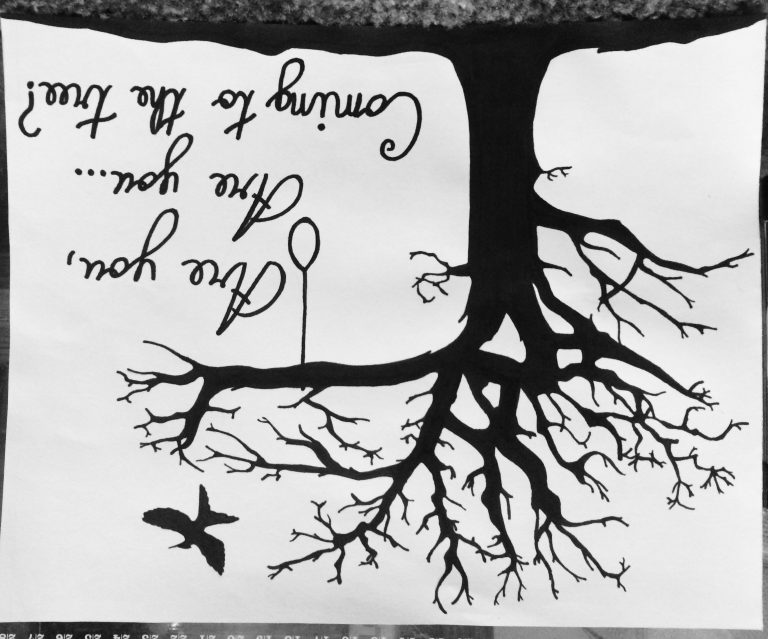 Are you,
Are you...
Coming to the tree?